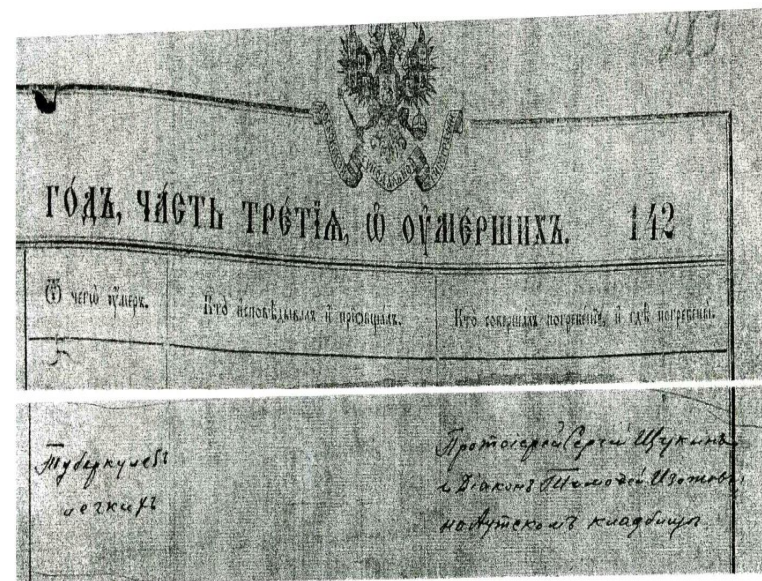 283
ГО́ДЪ, ЧА́СТЬ ТРЕ́ТІѦ, Ѡ҆ ОУ҆МЕ́РШИХЪ. 142
Ѿ чегѡ̀ ᲂу҆́меръ.
Кто̀ и҆сповѣ́дывалъ и҆ прїѡбща́лъ.
Кто̀ соверша́лъ погребе́нїе, и҆ гдѣ̀ погребены̀.
Туберкулезъ
легкихъ
Протоіерей Сергій Щукинъ
и Діаконъ Тимофей Изотовъ,
на Аутскомъ кладбищѣ.